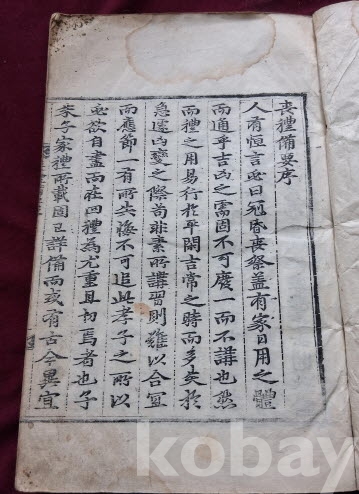 喪禮備要序
人有恒言必曰冠昏喪祭盖有家日用之體
而通乎吉凶之需固不可廢一而不講也然
而禮之用易行於平閑吉常之時而多失於
急遽凶變之際苟非素所講習則難以合宜
而應節一有所失悔不可追此孝子之所以
必欲自盡而在四禮為尤重且切焉者也子
朱子家禮所載固已詳備而或有古今異宜
kobay